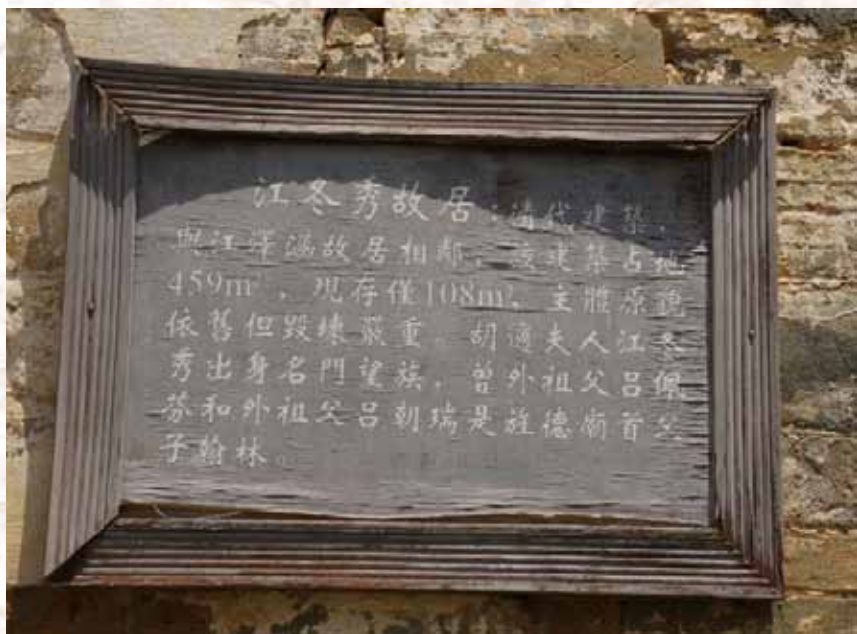 江冬秀故居：清代建築，
與江澤涵故居相鄰，該建築占地
459m²，現存僅108m²，主體原貌
依舊但毀壞嚴重。胡適夫人江冬
秀出身名門望族，曾外祖父呂佩
芬和外祖父呂朝瑞是旌德廟首父
子翰林。